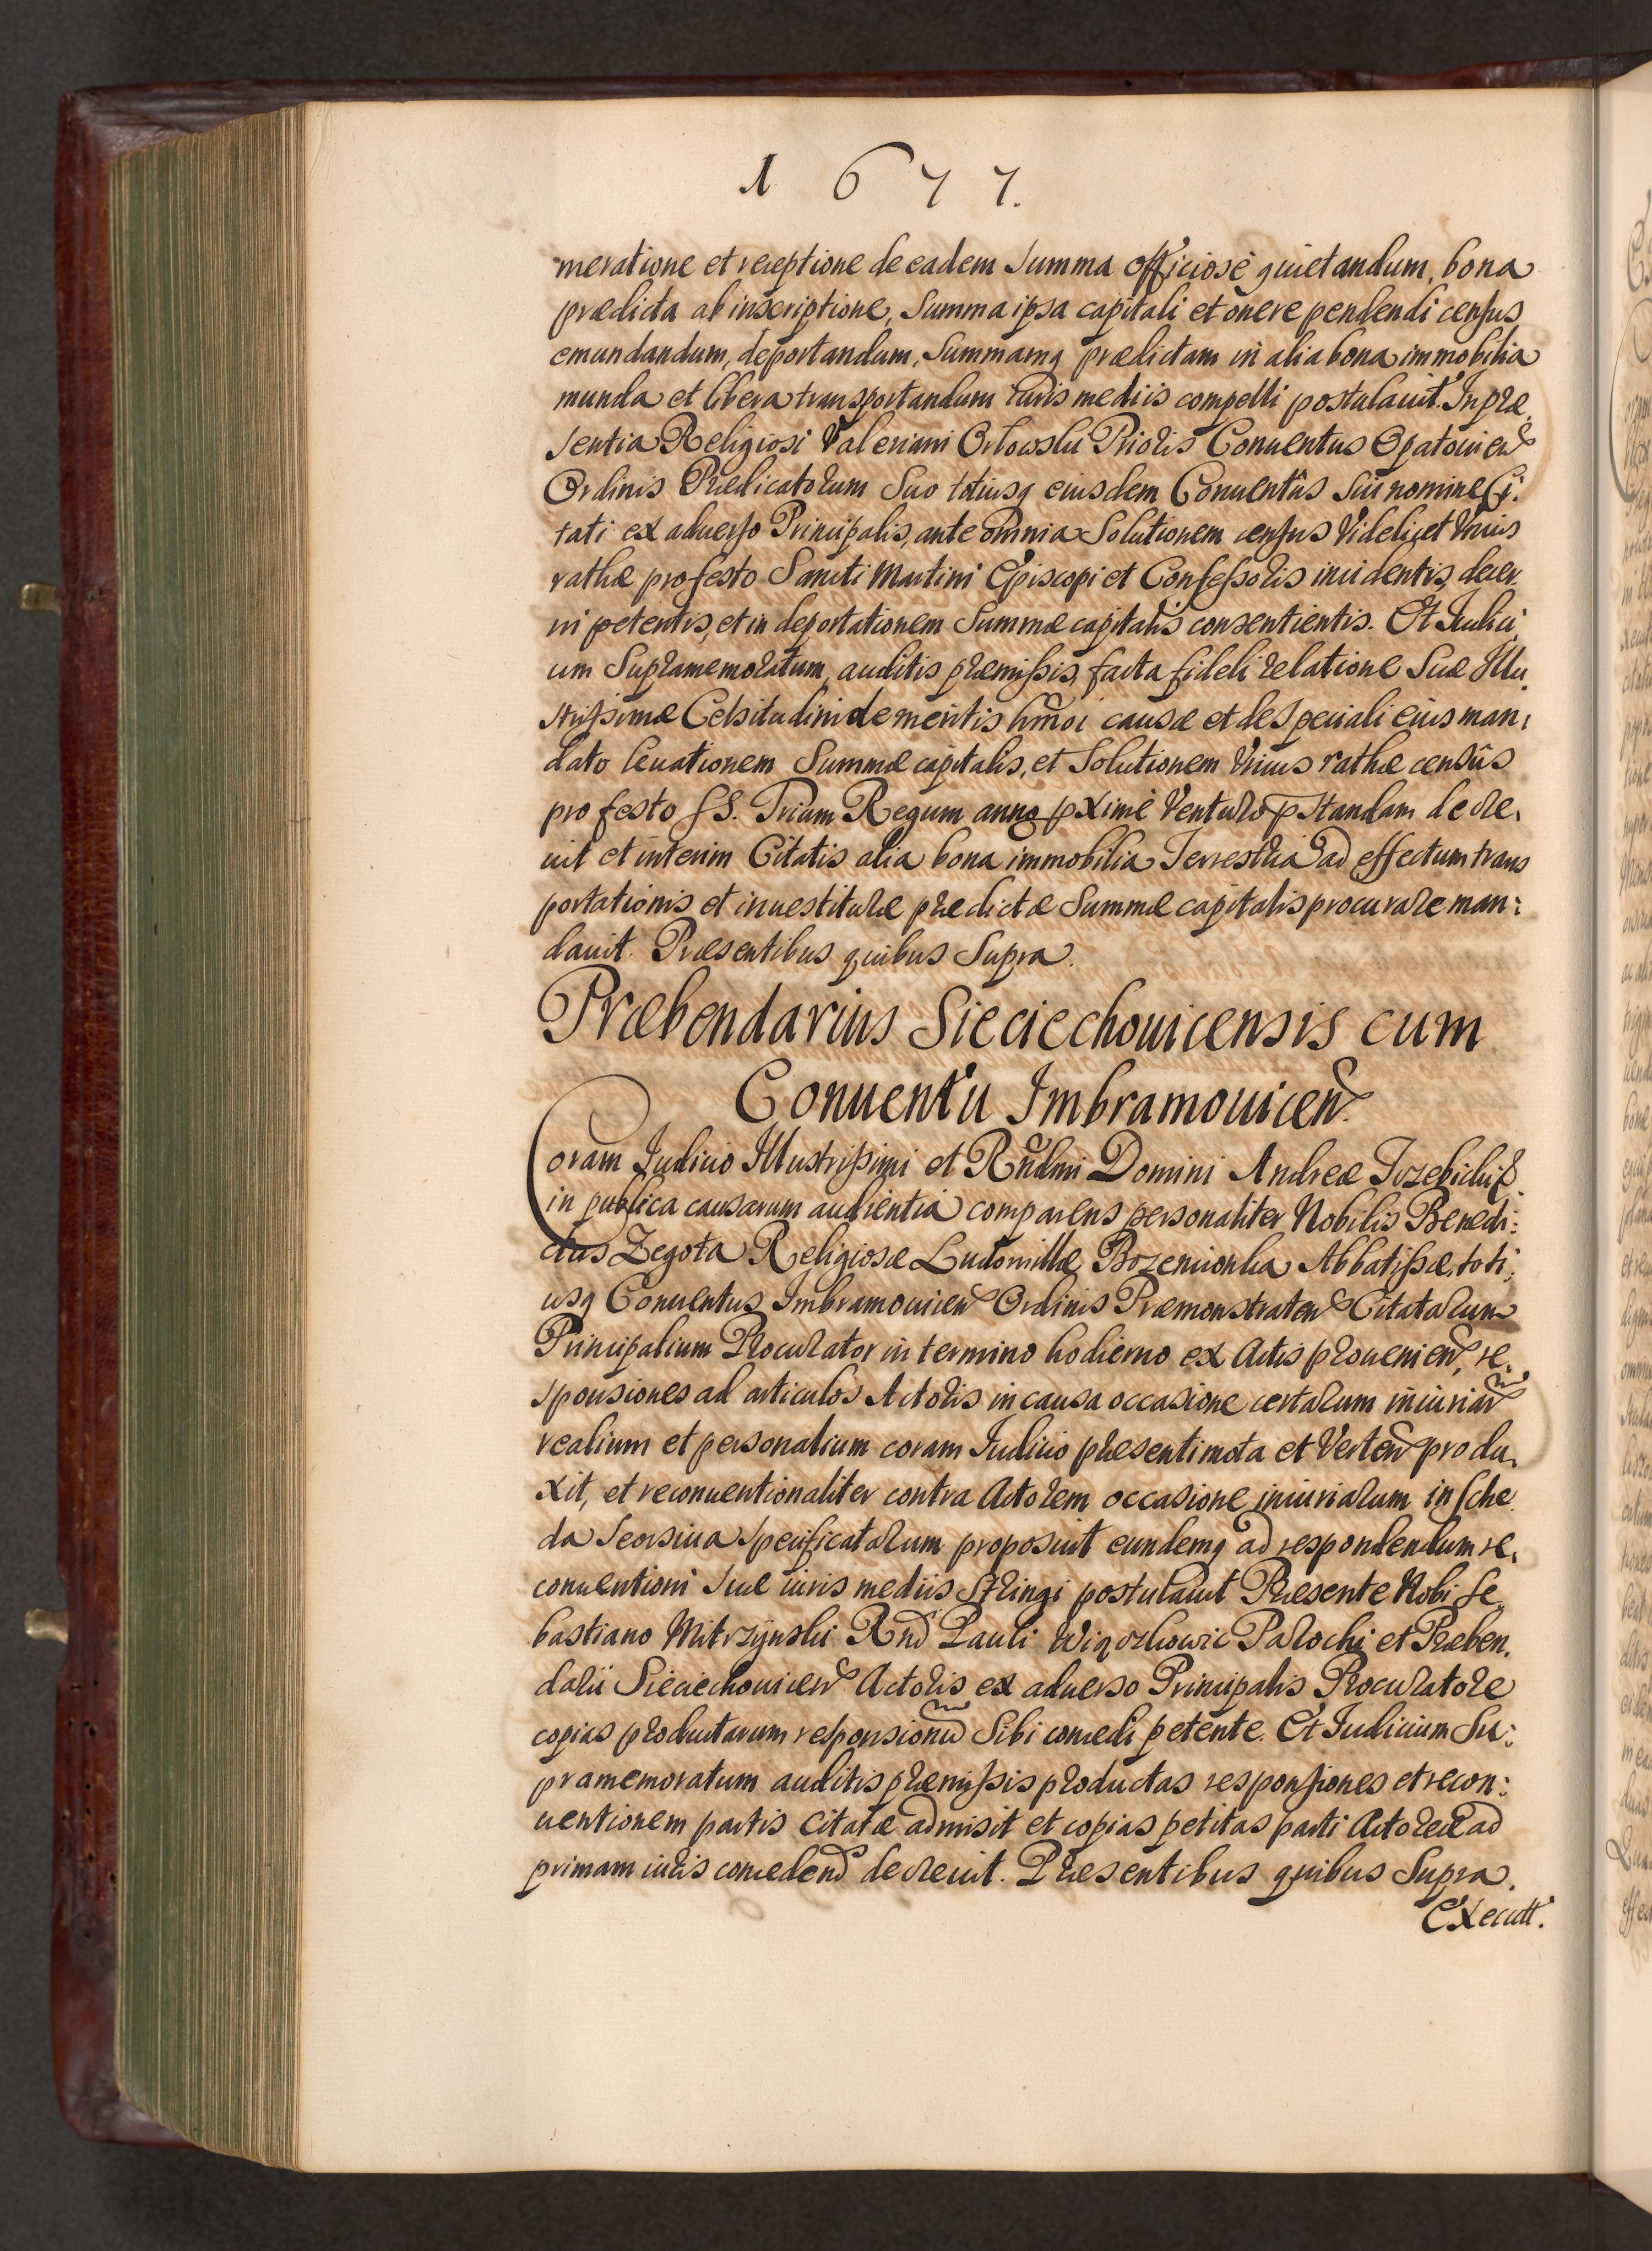 1677.
meratione et receptione de eadem Summa officiosè quietandum, bona
prædicta ab inscriptione, Summa ipsa capitali et onere pendendi census
emundandum, deportandum, Summamq prædictam in alia bona immobilia
munda et libera transportandum iuris mediis compelli postulauit. In præ,
sentia Religiosi Valeriani Orłowski Prioris Conuentus Opatouien
Ordinis Prædicatorum Suo totiusq eiusdem Conuentûs Sui nomine Ci:
tati ex aduerso Principalis, ante omnia Solutionem census Videlicet Vnius
rathæ pro festo Sancti Martini Episcopi et Confessoris incidentis, decer
ni petentis, et in deportationem Summæ capitalis consentientis. Et Iudici,
um Supramemoratum, auditis præmissis, facta fideli relatione Suæ Illu,
strissimæ Celsitudini de meritis hmõi causæ et de Speciali eius man,
dato leuationem Summæ capitalis, et Solutionem Vnius rathæ censûs
pro festo SS. Trium Regum anno pximè Venturo pstandam decre,
uit et interim Citatis alia bona immobilia Terrestria ad effectum trans
portationis et inuestituræ prædictæ Summæ capitalis procurare man:
dauit. Præsentibus quibus Supra.
Præbendarius Sieciechouicensis cum
Conuentu Imbramouicen
Coram Iudicio Illustrissimi et Rndmi Domini Andreæ Trzebicki
in publica causarum audientia comparens personaliter Nobilis Benedi:
ctus Zegota Religiosæ Ludomillæ Abbatissæ, toti,
usq Conuentus Imbramouicen Ordinis Præmonstraten Citatarum
Principalium Procurator in termino hodierno ex Actis prouenien, re,
sponsiones ad articulos Actoris in causa occasione certarum iniuriar
realium et personalium coram Iudicio præsenti mota et Verten produ,
xit, et reconuentionaliter contra Actorem occasione iniuriarum in Sche
da Seorsiua Specificatarum proposuit eundemq ad respondendum re,
conuentioni Suæ iuris mediis Stringi postulauit Præsente Nobi Se,
bastiano Mitrzynski Rnd Pauli Parochi et Præben,
darii Sieciechouicen Actoris ex aduerso Principalis Procuratore
copias productarum responsionu Sibi concedi petente. Et Iudicium Su:
pramemoratum auditis præmissis productas responsiones et recon:
uentionem partis Citatæ admisit et copias petitas parti Actoreæ ad
primam iuris concedend decreuit. Præsentibus quibus Supra.
Executt.